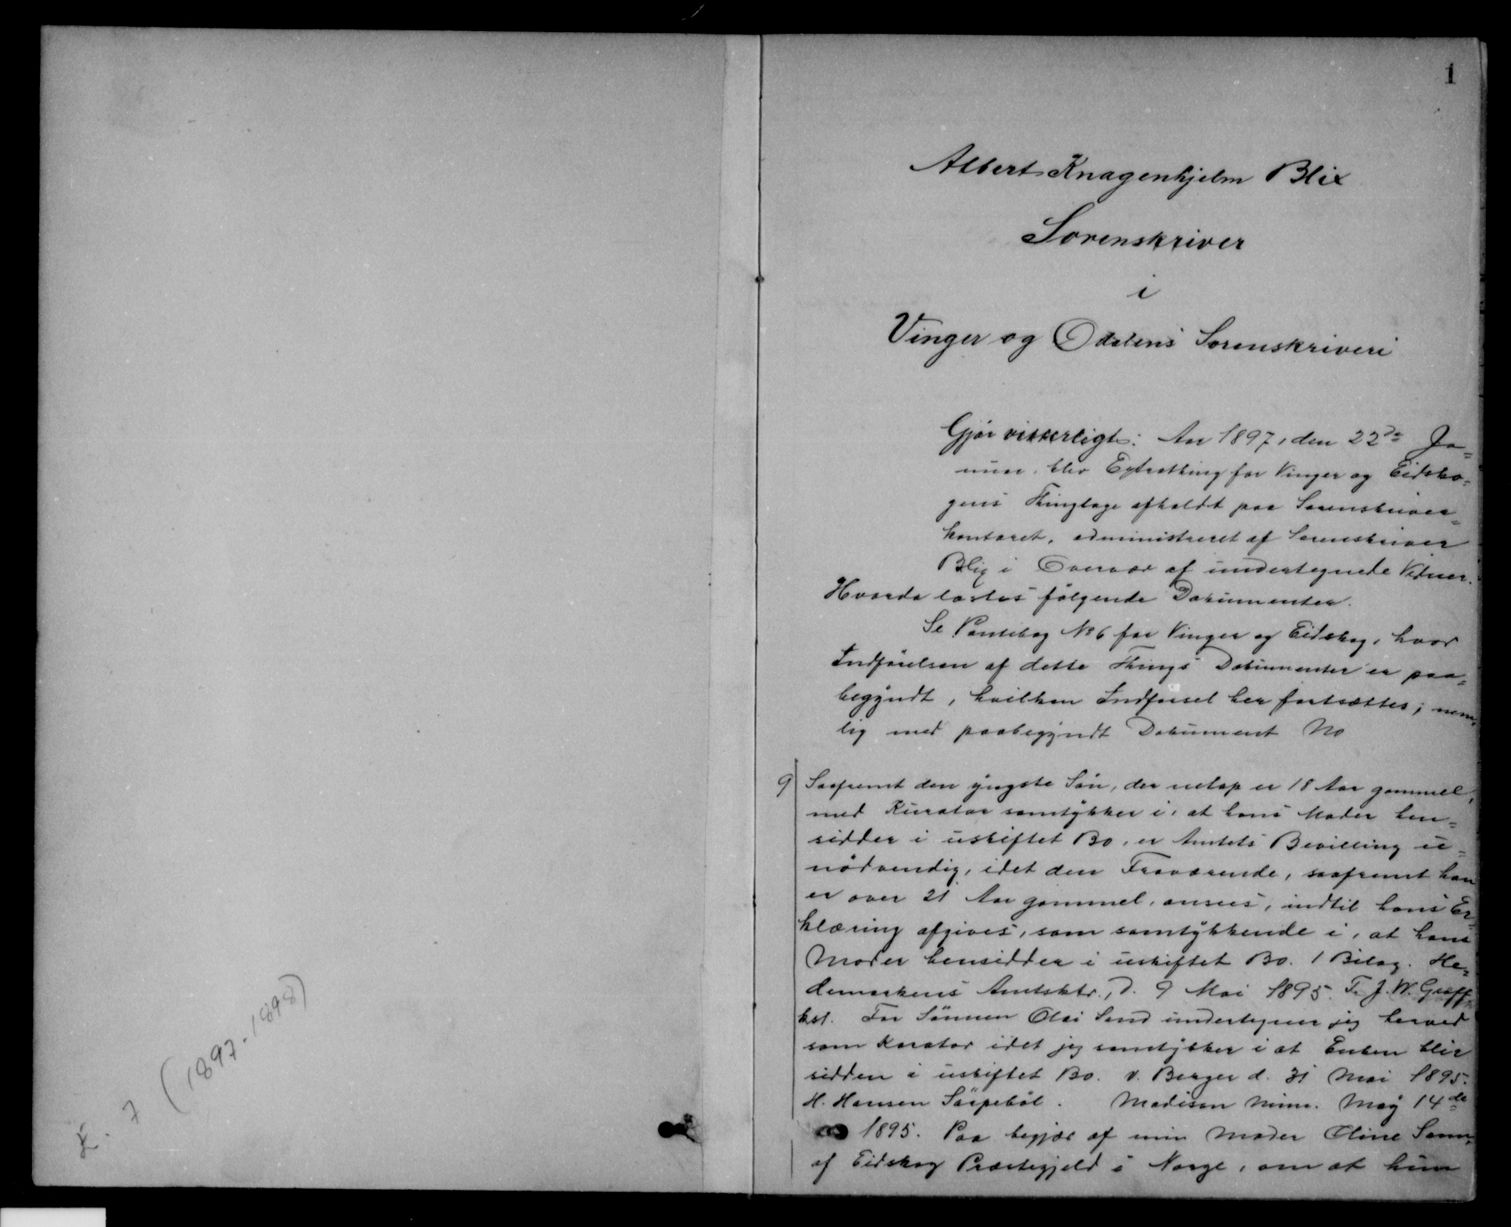 1
Albert Knagenhjelm Blix
Sorenskriver
i
Vinger og Odalens Sorenskriveri
Gjør vitterligt: Aar 1897, den 22de Ja=
nuar, blev Extrathing for Vinger og Eidsko=
gens Thinglag afholdt paa Sorenskriver=
kontoret, administreret af Sorenskriver
Blix i Overvær af undertegnede Vidner.
Hvorda læstes følgende Dokumenter.
Se Pantebog No 6 for Vinger og Eidskog, hvor
Indførelsen af dette Things Dokumenter er paa=
begyndt, hvilken Indførsel her fortsættes; nem=
lig med paabegyndt Dokument No
9 Saafremt den yngste Søn, der netop er 18 Aar gammel,
med Kurator samtykker i, at hans Moder hen=
sidder i uskiftet Bo, er Amtets Bevilling u=
nødvendig, idet den Fraværende, saafremt han
er over 21 Aar gammel, ansees, indtil hans Er=
klæring afgives, som samtykkende i, at hans
Moder hensidder i uskiftet Bo. 1 Bilag. He=
demarkens Amtsktr., d. 9 Mai 1895. T. J. W. Græff
kst. For Sønnen Olai Sand undertegner jeg herved
som Kurator idet jeg samtykker i at Enken blir
sidden i uskiftet Bo. v. Berger d. 31 Mai 1895.
H. Hansen Saipebøl. Madison Minn. May 14de
1895. Paa begjær af min Moder Oline Sann,
af Eidskog Præstegjeld i Norge, om at hun
L. 7 (1897-1898)